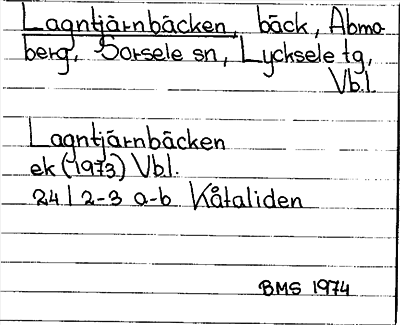 Lagntjärnbäcken, bäck, Abmo-
berg, Sorsele sn, Lycksele tg,
Vb.l.
Lagntjärnbäcken
ek (1973) Vbl.
24 I 2-3 a-b Kåtaliden
BMS 1974